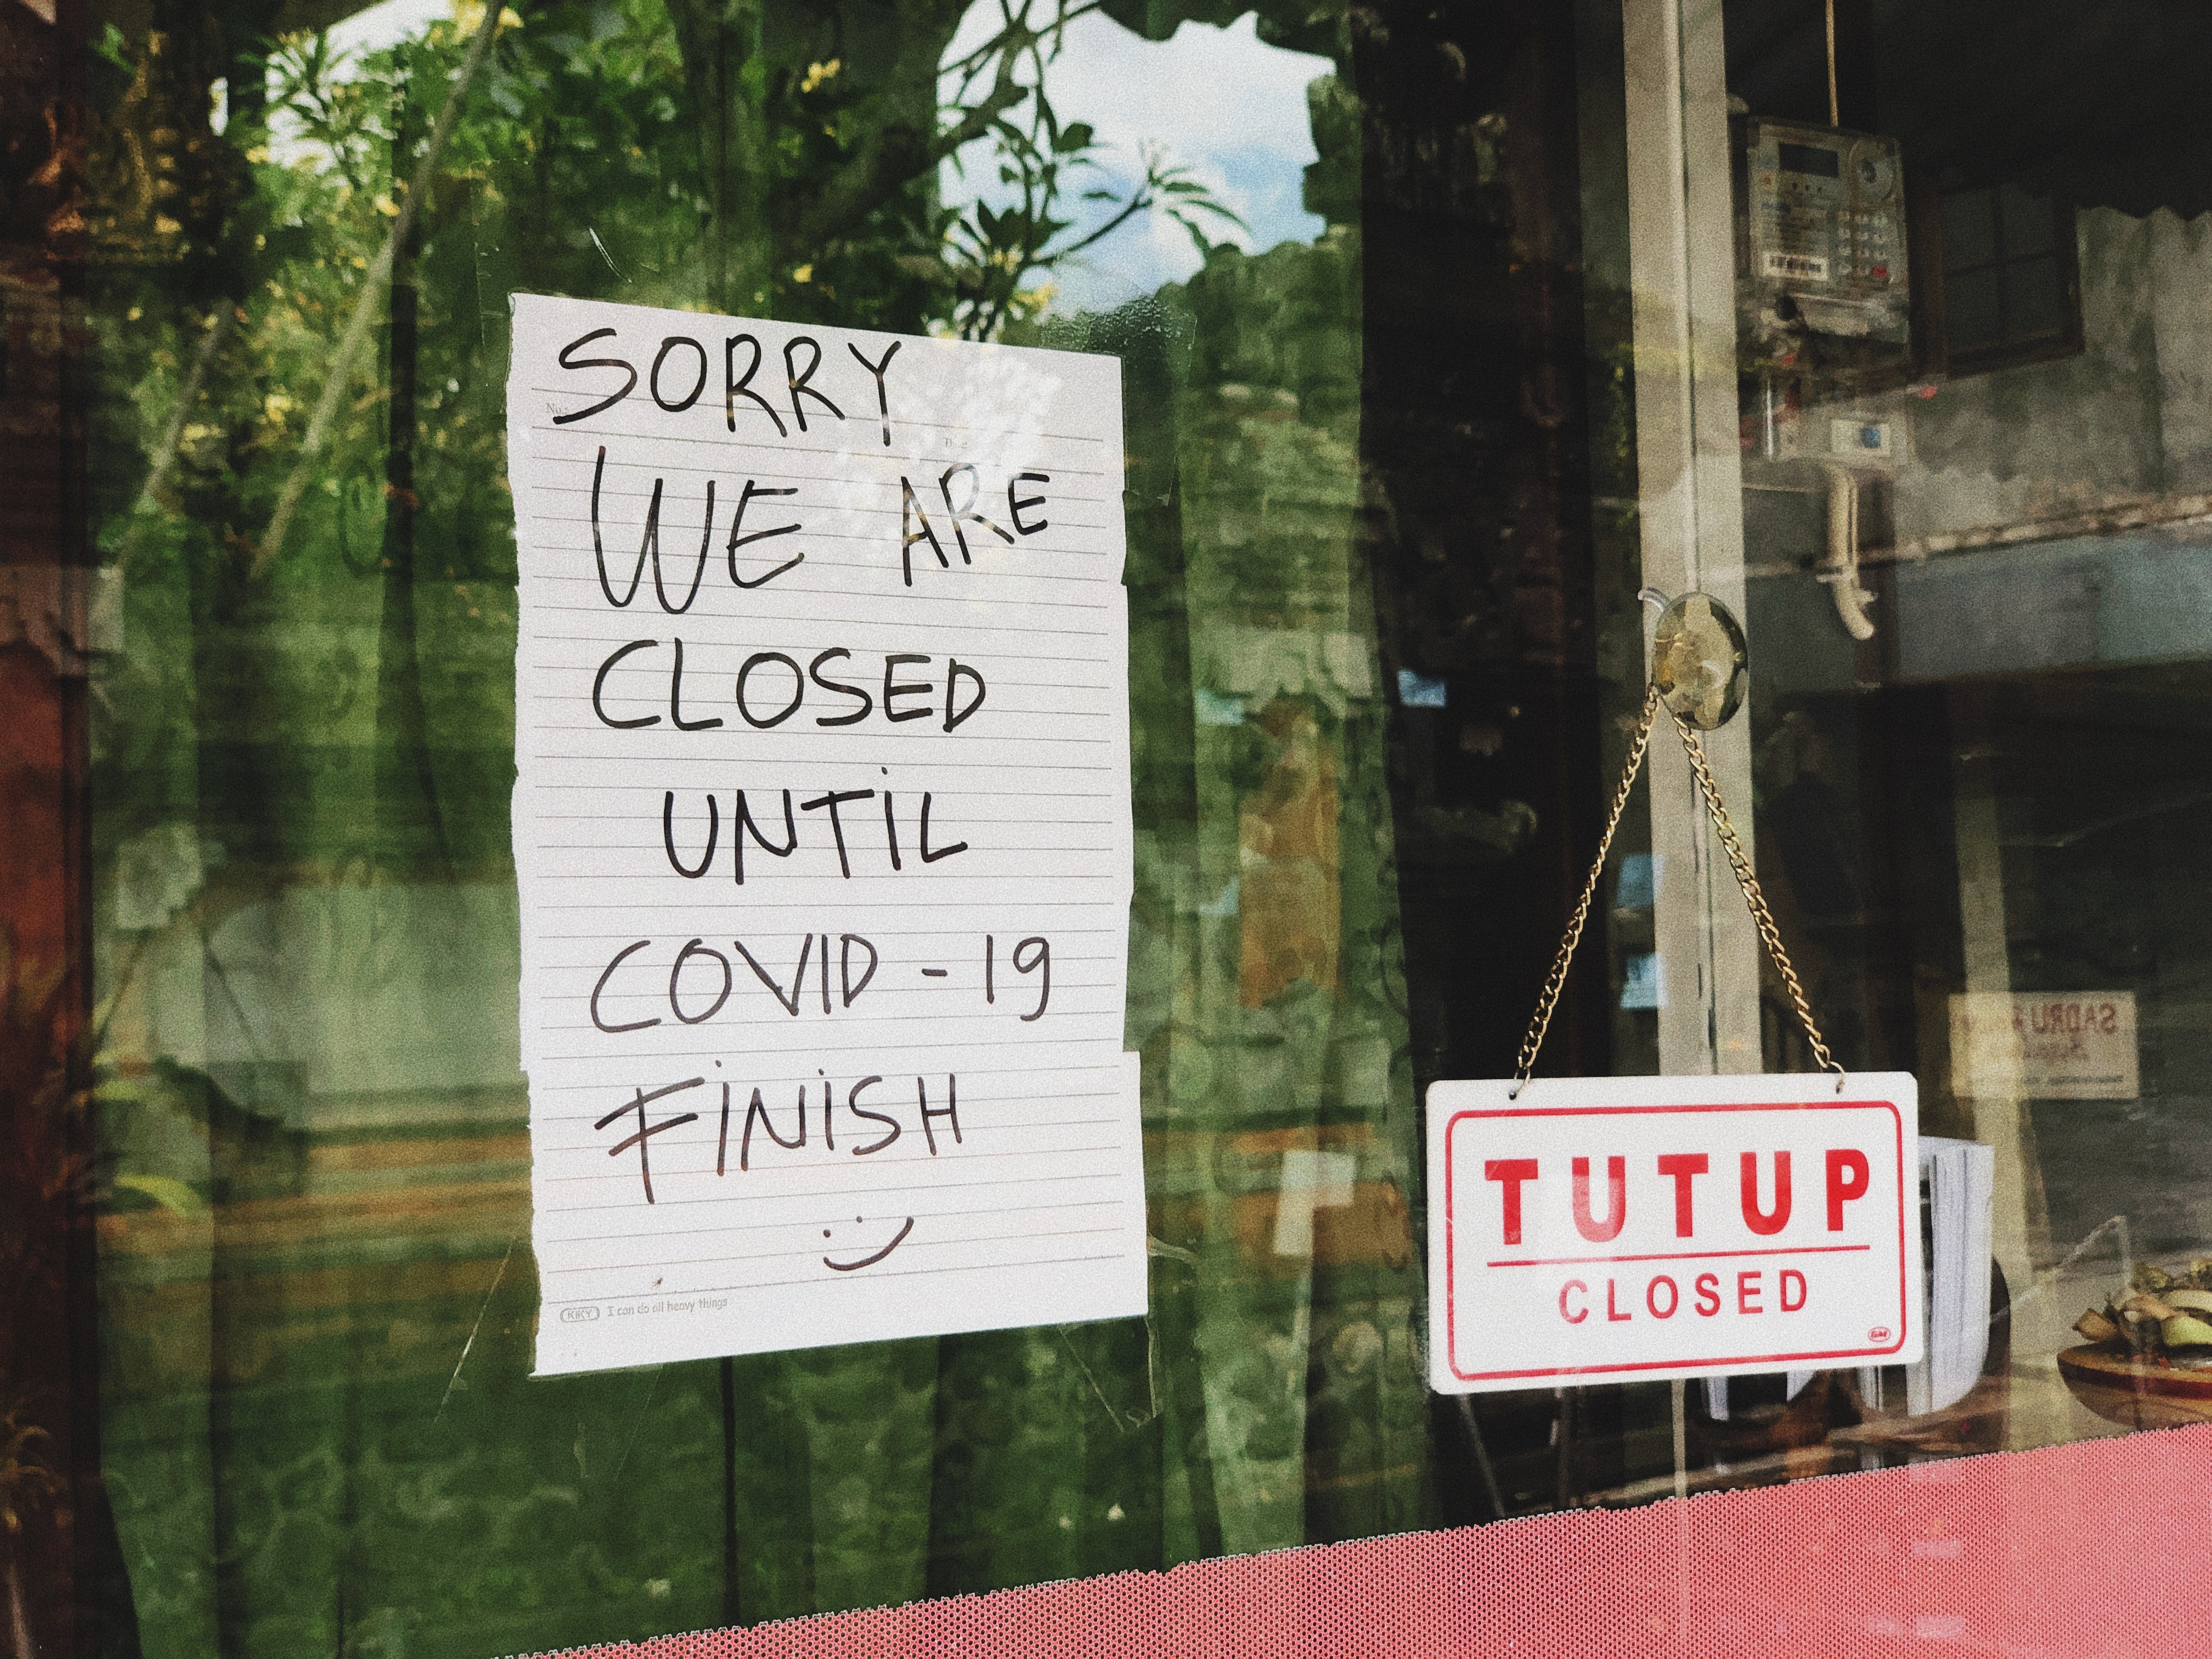 SORRY
WE ARE
CLOSED
UNTIL
COVID-19
FINISH
KIKY I can do all heavy things
TUTUP
CLOSED